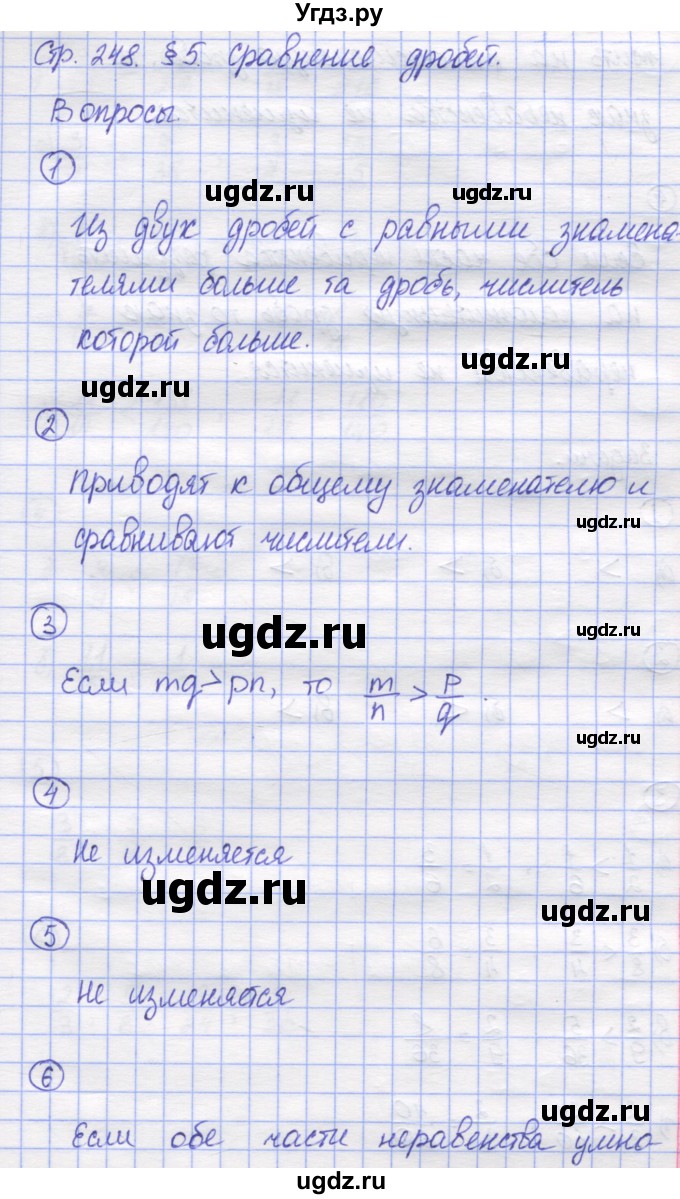 Угдз.ру
Стр. 248. § 5. Сравнение дробей.
Вопросы.
1
ugdz.ru
ugdz.ru
Из двух дробей с равными знамена-
телями больше та дробь, числитель
которой больше.
ugdz.ru
ugdz.ru
2
Приводят к общему знаменателю и
ugdz.ru
сравнивают числители.
3
ugdz.ru
ugdz.ru
Если mq>pn, то m/n > p/q.
ugdz.ru
4
Не изменяется
ugdz.ru
ugdz.ru
5
Не изменяется
6
ugdz.ru
Если обе части неравенства умно-
ugdz.ru